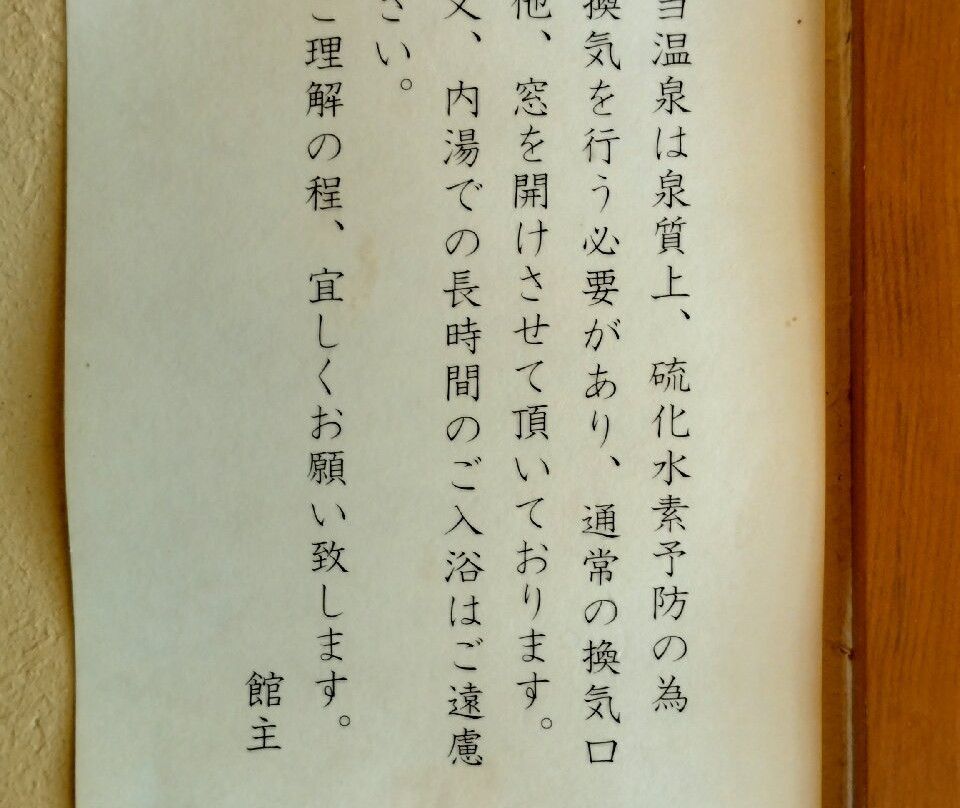 当温泉は泉質上、硫化水素予防の為
換気を行う必要があり、通常の換気口
他、窓を開けさせて頂いております。
又、内湯での長時間のご入浴はご遠慮
さい。
ご理解の程、宜しくお願い致します。
館主